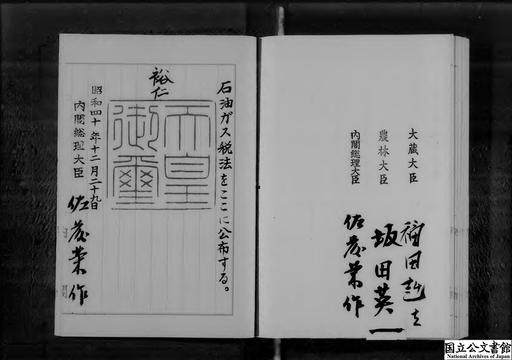 石油ガス税法をここに公布する。
裕仁
天皇御璽
昭和四十年十二月二十九日
内閣総理大臣
佐藤榮作
大蔵大臣
福田赳夫
農林大臣
坂田英一
内閣総理大臣
佐藤榮作
国立公文書館
National Archives of Japan